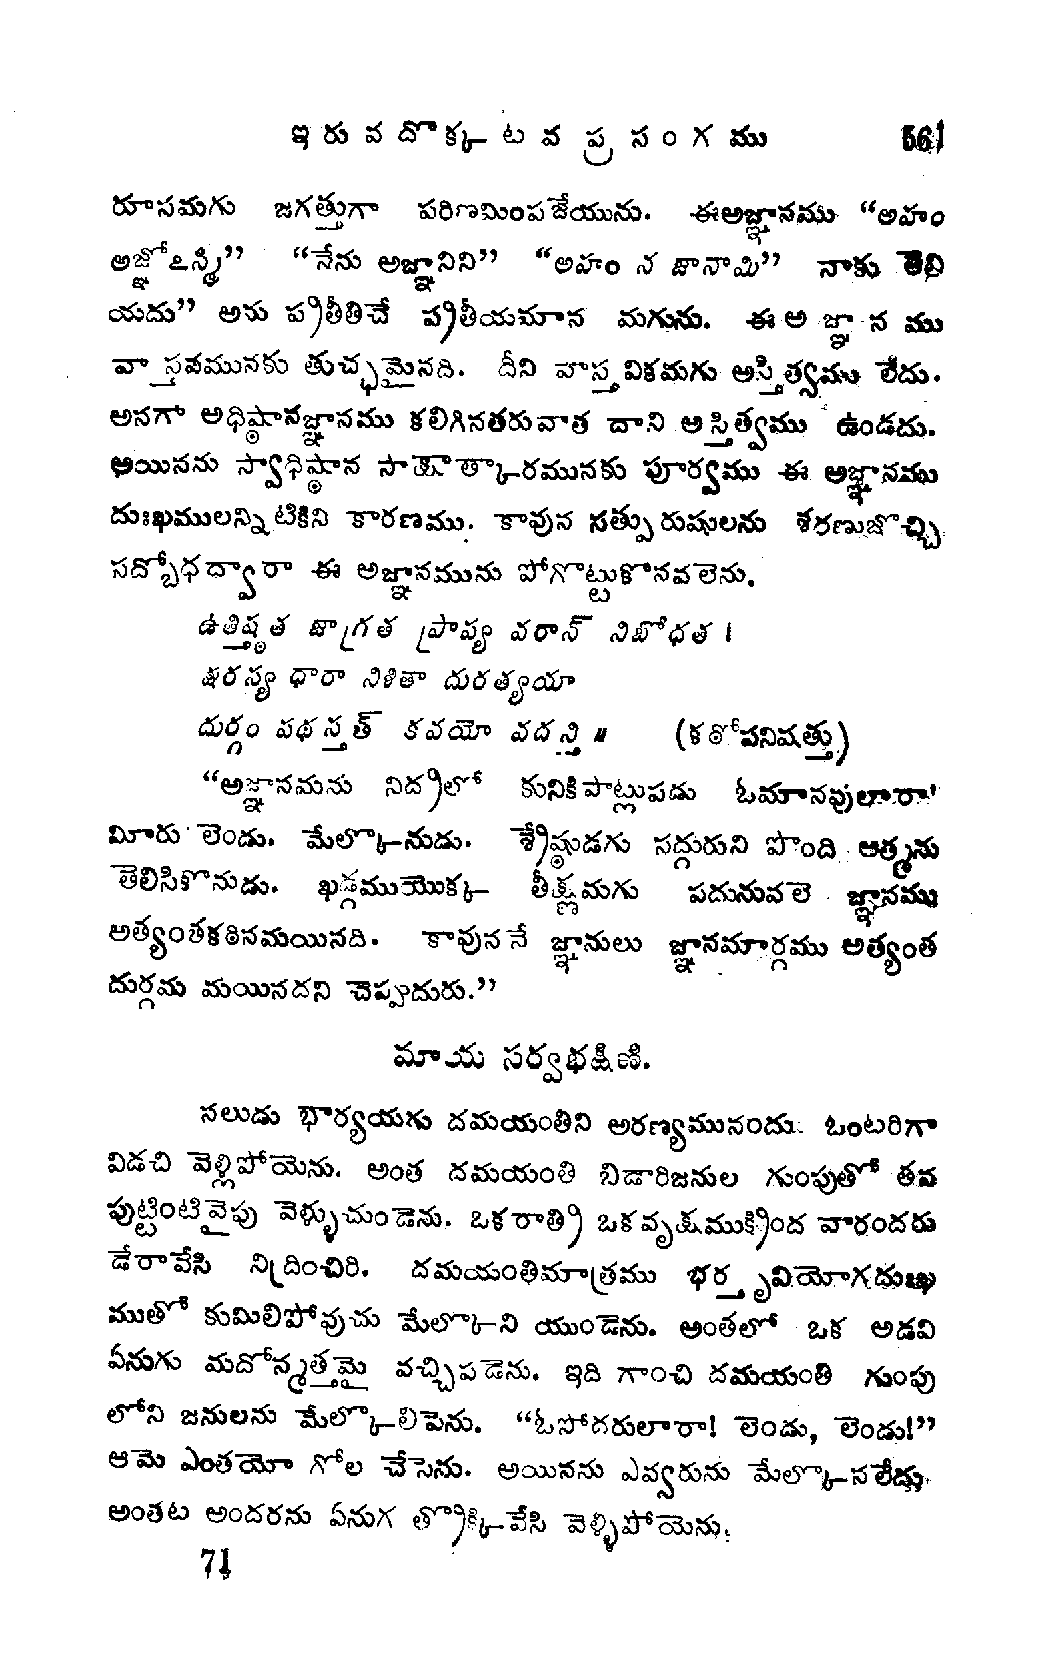 ఇరువదొక్కటవ ప్రసంగము 561
రూపమగు జగత్తుగా పరిణమింపజేయును. ఈఅజ్ఞానము “అహం
అజ్ఞోఽస్మి” “నేను అజ్ఞానిని” “అహం న జానామి” నాకు తెలి
యదు” అను ప్రతీతిచే ప్రతీయమాన మగును. ఈ అజ్ఞానము
వాస్తవమునకు తుచ్ఛమైనది. దీని వాస్తవికమగు అస్తిత్వము లేదు.
అనగా అధిష్ఠానజ్ఞానము కలిగినతరువాత దాని అస్తిత్వము ఉండదు.
అయినను స్వాధిష్ఠాన సాక్షాత్కారమునకు పూర్వము ఈ అజ్ఞానము
దుఃఖములన్నిటికిని కారణము. కావున సత్పురుషులను శరణుజొచ్చి
సద్బోధద్వారా ఈ అజ్ఞానమును పోగొట్టుకొనవలెను.
ఉత్తిష్ఠత జాగ్రత ప్రాప్య వరాన్ నిబోధత ।
క్షురస్య ధారా నిశితా దురత్యయా
దుర్గం పథస్తత్ కవయో వదన్తి ॥ (కఠోపనిషత్తు)
“అజ్ఞానమను నిద్రలో కునికిపాట్లుపడు ఓమానవులారా!
మీరు లెండు. మేల్కొనుడు. శ్రేష్ఠుడగు సద్గురుని పొంది ఆత్మను
తెలిసికొనుడు. ఖడ్గముయొక్క తీక్ష్ణమగు పదునువలె జ్ఞానము
అత్యంతకఠినమయినది. కావుననే జ్ఞానులు జ్ఞానమార్గము అత్యంత
దుర్గమ మయినదని చెప్పుదురు.”
మాయ సర్వభక్షిణి.
నలుడు భార్యయగు దమయంతిని అరణ్యమునందు ఓంటరిగా
విడచి వెళ్లిపోయెను. అంత దమయంతి బిడారిజనుల గుంపుతో తన
పుట్టింటివైపు వెళ్ళుచుండెను. ఒకరాత్రి ఒకవృక్షముక్రింద వారందరు
డేరావేసి నిద్రించిరి. దమయంతిమాత్రము భర్తృవియోగదుఃఖ
ముతో కుమిలిపోవుచు మేల్కొని యుండెను. అంతలో ఒక అడవి
ఏనుగు మదోన్మత్తమై వచ్చిపడెను. ఇది గాంచి దమయంతి గుంపు
లోని జనులను మేల్కొలిపెను. “ఓసోదరులారా! లెండు, లెండు!”
ఆమె ఎంతయో గోల చేసెను. అయినను ఎవ్వరును మేల్కొనలేదు.
అంతట అందరను ఏనుగ త్రొక్కివేసి వెళ్ళిపోయెను.
71